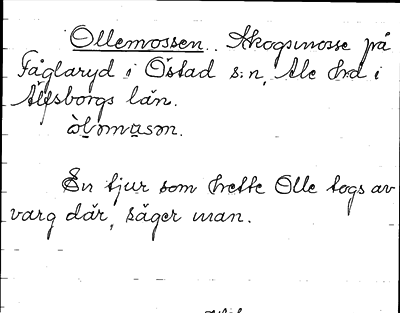 Ollemossen. Skogsmosse på
Fåglaryd i Östad s:n, Ale hrd i
Älfsborgs län.
òlmmasm.
En tjur som hette Olle togs av
varg där, säger man.